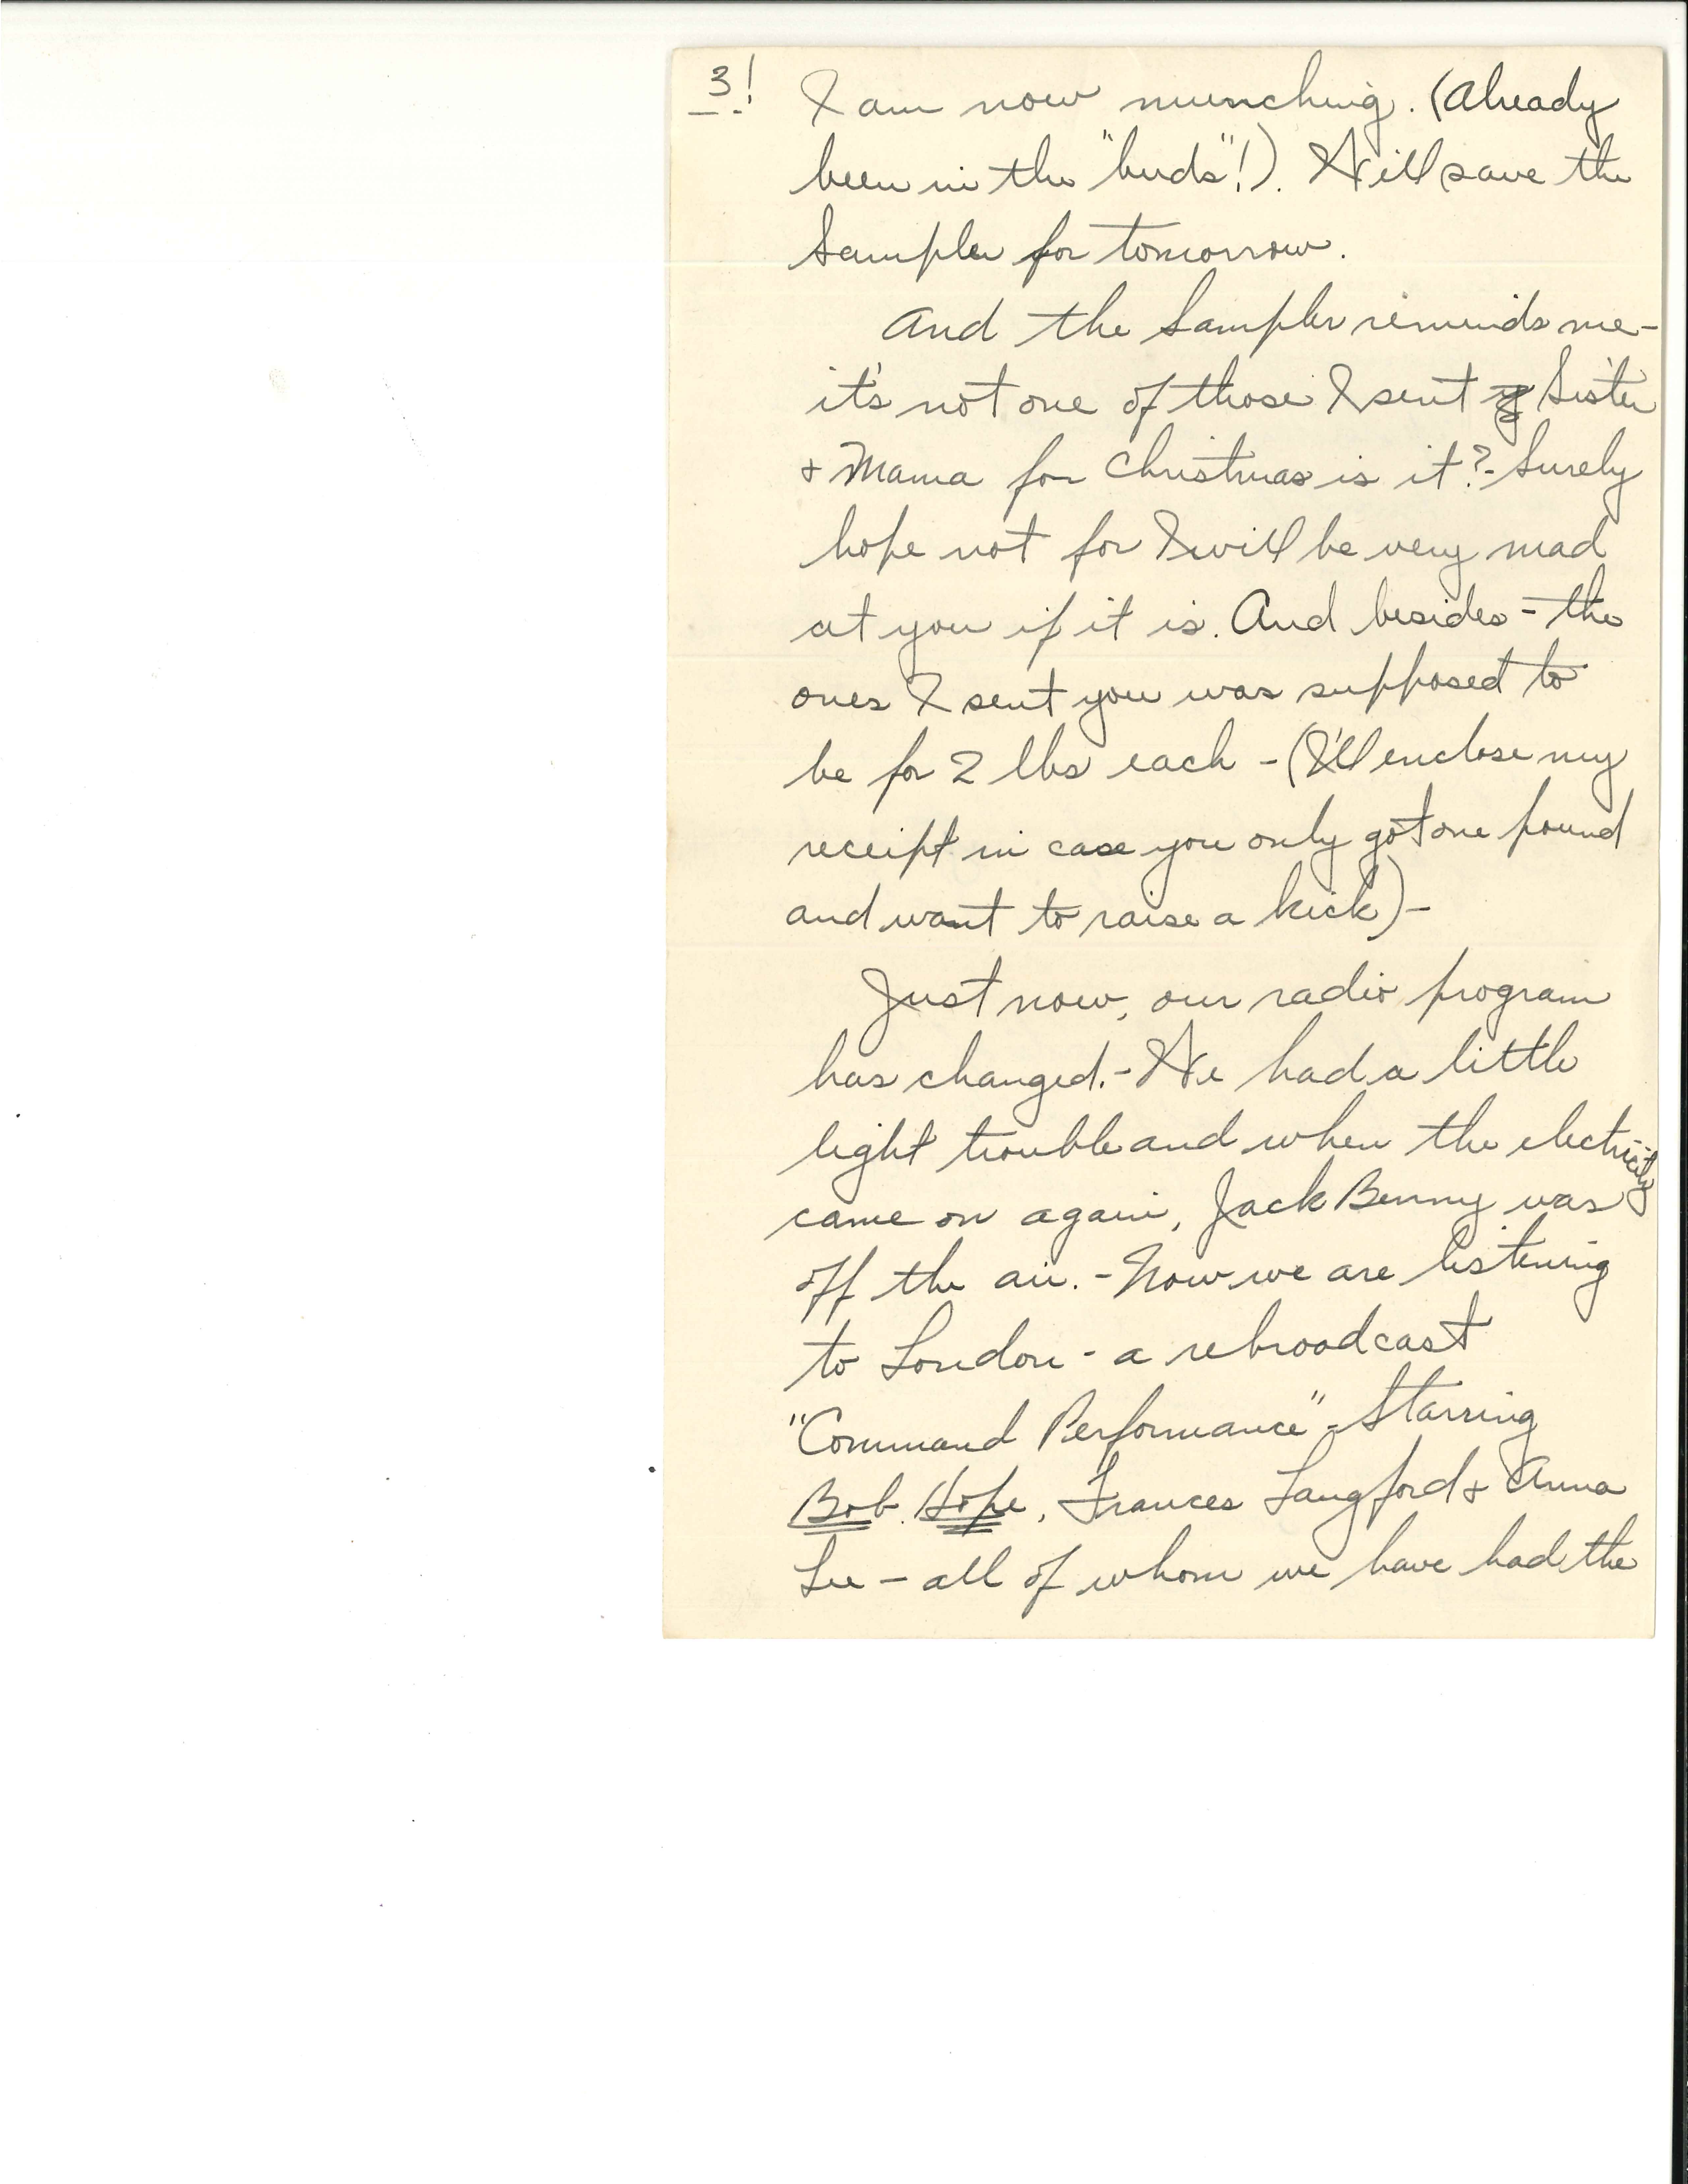 3!
I am now munching. (Already
been in the "buds"!). Will save the
Sampler for tomorrow.
And the Sampler reminds me-
it's not one of those I sent Sister
& Mama for Christmas is it?- Surely
hope not for I will be very mad
at you if it is. And besides - the
ones I sent you was supposed to
be for 2 lbs each - (I'll enclose my
receipt in case you only got one pound
and want to raise a kick)-
Just now, our radio program
has changed.- We had a little
light trouble and when the electricity
came on again, Jack Benny was
off the air. - Now we are listening
to London - a rebroadcast
"Command Performance" - Starring
Bob Hope, Frances Langford & Anna
Lee - all of whom we have had the